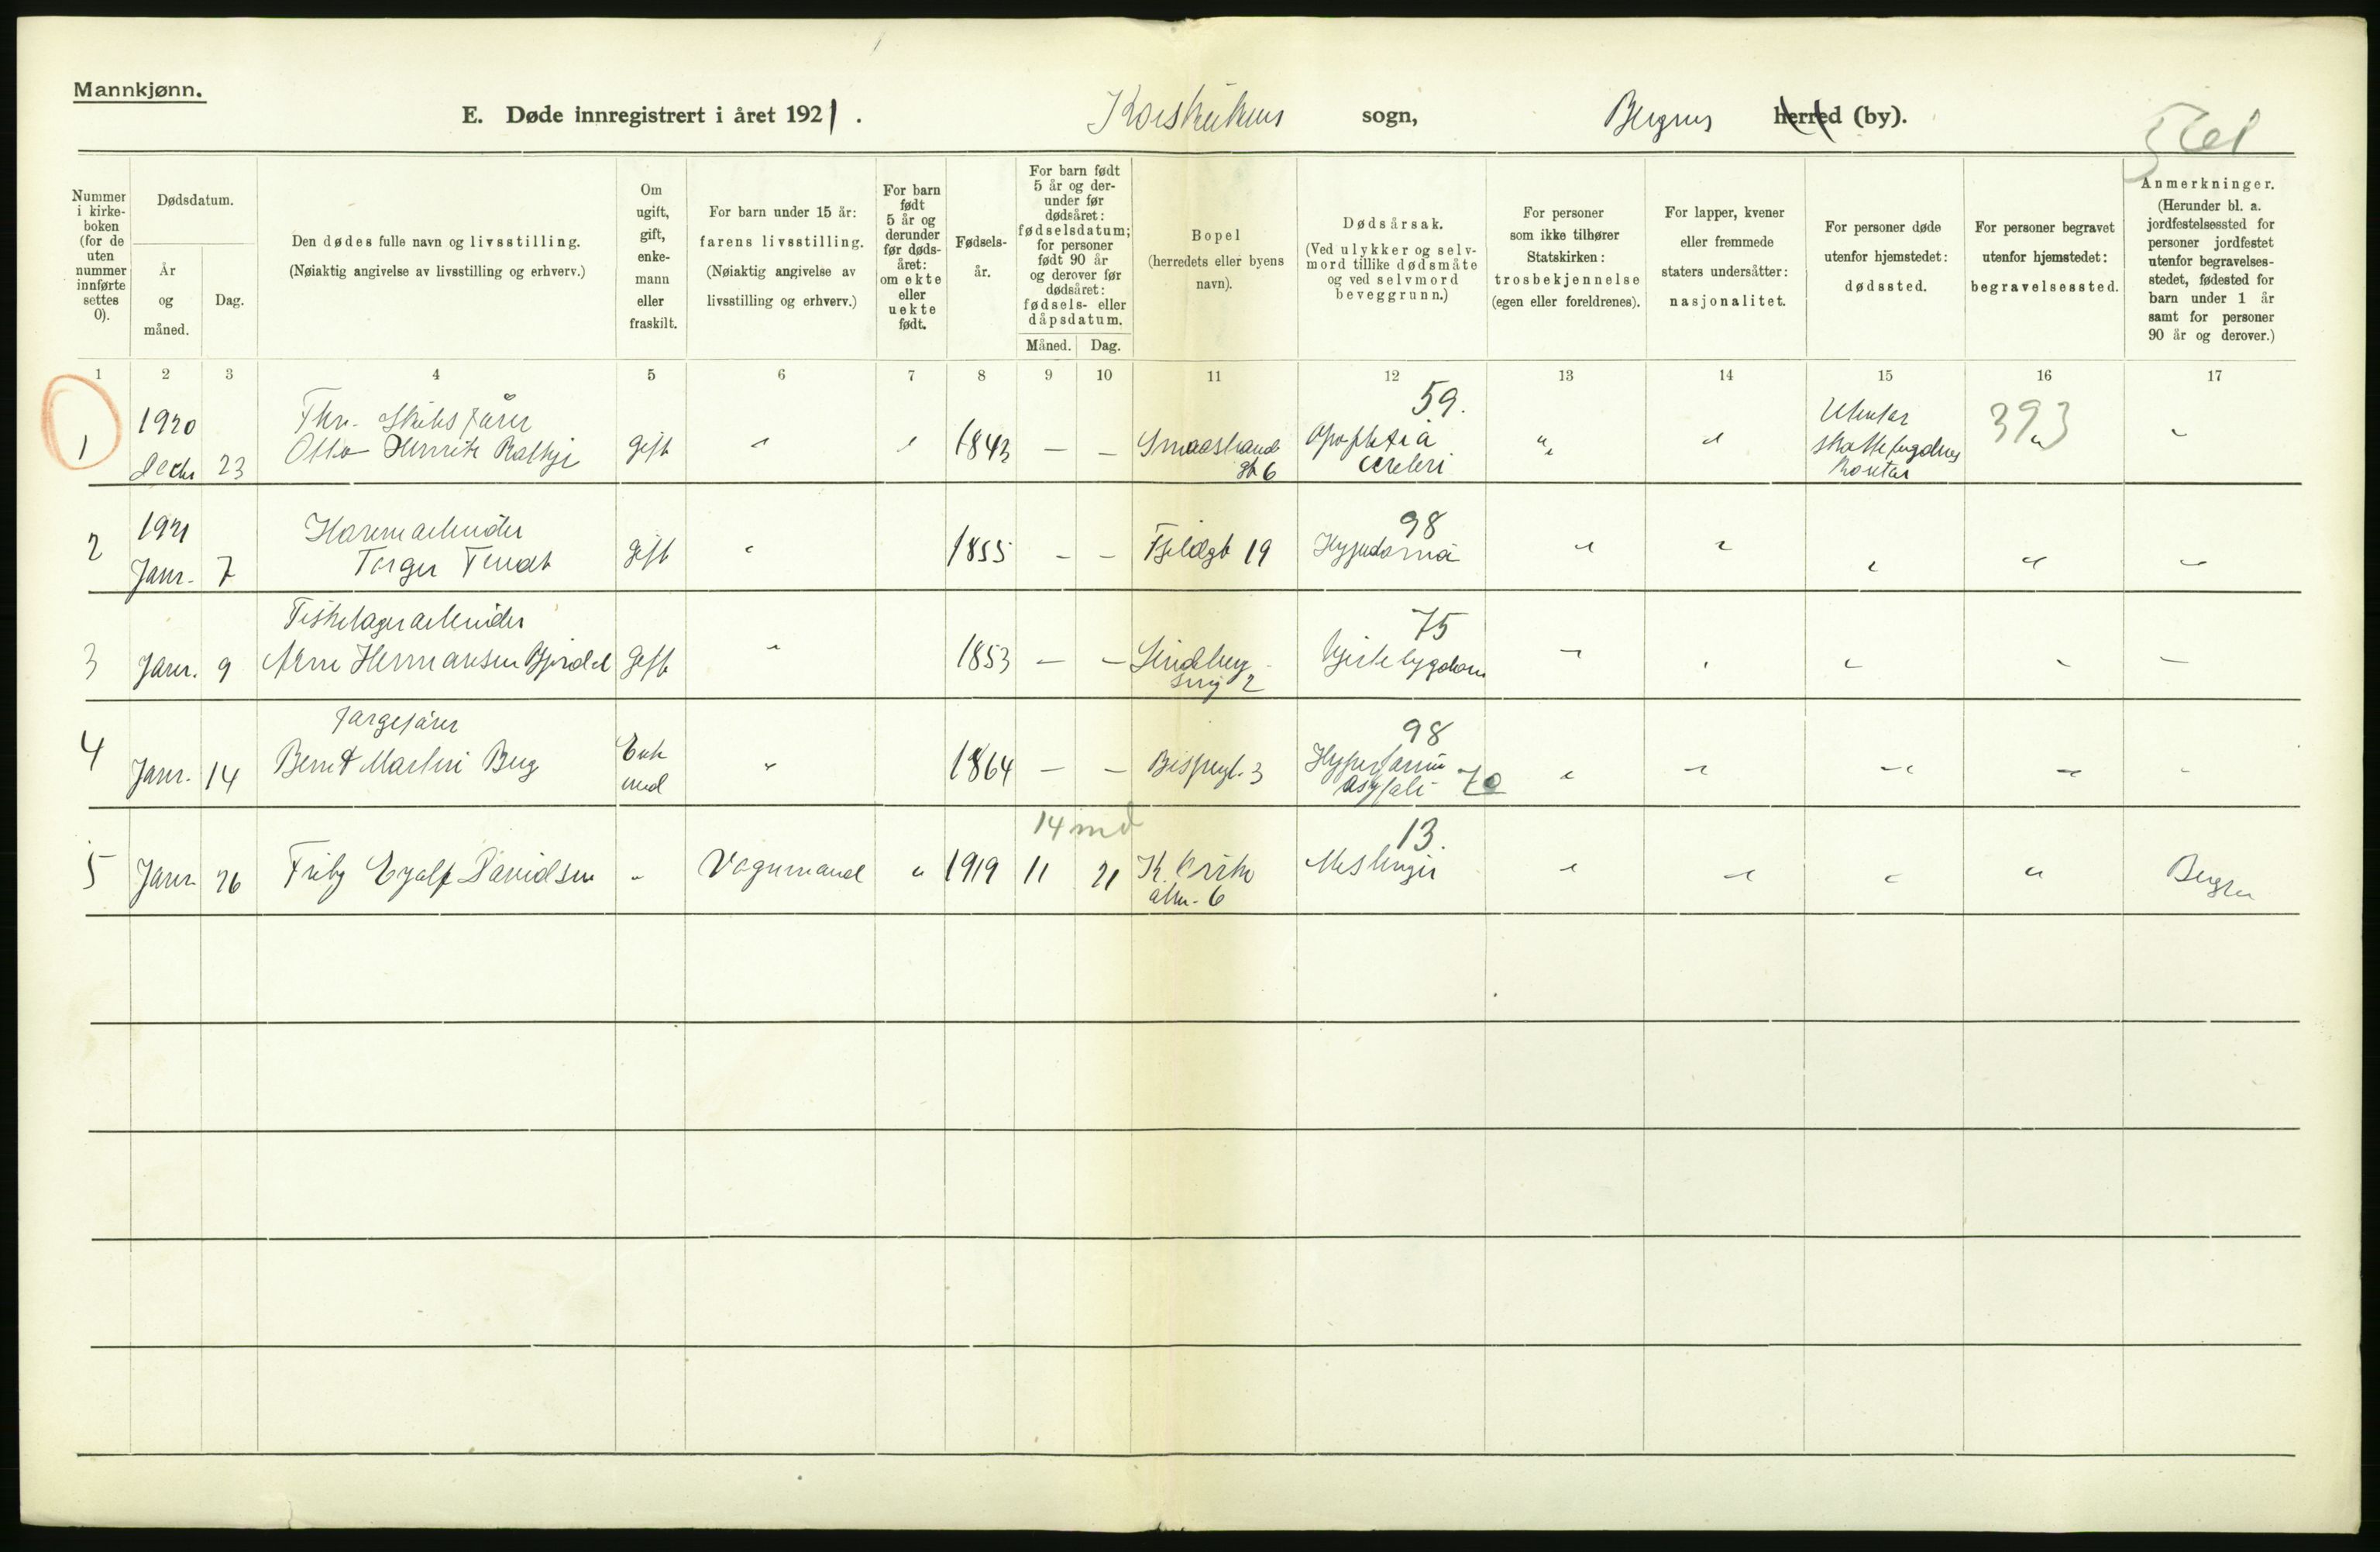 Mannkjønn.
E. Døde innregistrert i året 1921.
Korskirkens sogn,
Bergens herred (by).
Nummer i kirke- boken (for de uten nummer innførte settes 0).
Dødsdatum.
År og måned.
Dag.
Den dødes fulle navn og livsstilling.
(Nøiaktig angivelse av livsstilling og erhverv.)
Om ugift, gift, enke- mann eller fraskilt.
For barn under 15 år:
farens livsstilling.
(Nøiaktig angivelse av livsstilling og erhverv.)
For barn født 5 år og derunder før døds- året: om ekte eller uekte født.
Fødsels- år.
For barn født 5 år og der- under før dødsåret: fødselsdatum; for personer født 90 år og derover før dødsåret: fødsels- eller dåpsdatum.
Måned.
Dag.
Bopel
(herredets eller byens navn).
Dødsårsak.
(Ved ulykker og selv- mord tillike dødsmåte og ved selvmord beveggrunn.)
For personer som ikke tilhører Statskirken: trosbekjennelse (egen eller foreldrenes).
For lapper, kvener eller fremmede staters undersåtter: nasjonalitet.
For personer døde utenfor hjemstedet: dødssted.
For personer begravet utenfor hjemstedet: begravelsessted.
Anmerkninger.
(Herunder bl. a. jordfestelsessted for personer jordfestet utenfor begravelses- stedet, fødested for barn under 1 år samt for personer 90 år og derover.)
1 2 3 4 5 6 7 8 9 10 11 12 13 14 15 16 17
1 1920 Decbr 23
Fhv. Skibsfører
Otto Henrik Rathje
gift " " 1843 — —
Smaastrand gt 6
59.
Apoplexia cerebri
" "
skattefogdens Kontor
393
"
2 1921 Janr. 7
Havnearbeider
Torger Tendt
gift " 1855 — —
98
" " " " "
3 Janr. 9
Fiskelagerarbeider
Arne Hermansen
gift " 1853 — —
2
75
Hjertesygdom
" " " " "
4 Janr. 14
Jargefører
Bernt Martin Berg
Enke mand " 1864 — —
Bispegt. 3
98
70
" " " " "
5 Janr. 26
Eyolf Davidsen
" Vognmand " 1919 11 21
14 md
K. Oscar 6
13.
Meslinger
" " " "
Bergen